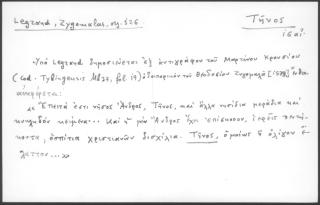 Legrand, Zygomalas, σσ. 526.
Τῆνος
ις αἰ.
Ὑπὸ Legrand δημοσιεύεται ἐξ ἀντιγράφου τοῦ Μαρτίνου Κρουσίου
(cod. Tybingensis Mb 37, fol. ὁδοιπορικὸν τοῦ Θεοδοσίου Ζυγομαλᾶ
ἀναφέρεται:
"Ἔπειτά ἐστι νῆσος Ἄνδρος, Τῆνος, καὶ ἄλλα νησίδια μεγάλα καὶ
κείμενα... Καὶ ἡ μὲν Ἄνδρος ἔχει ἐπίσκοπον, ἱερεῖς
ὀσπίτια χριστιανῶν δισχίλια. Τῆνος, ὁμοίως ἢ ὀλίγον
λαττον...»